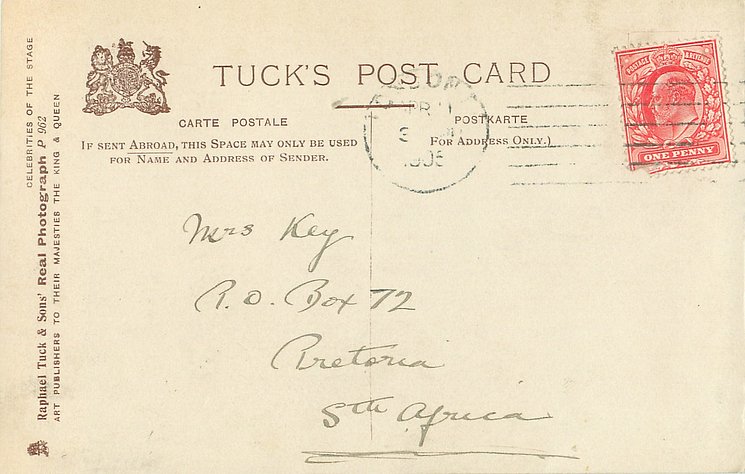 CELEBRITIES OF THE STAGE
Raphael Tuck & Sons' Real Photograph P 962
ART PUBLISHERS TO THEIR MAJESTIES THE KING & QUEEN
TUCK'S POST CARD
CARTE POSTALE
POSTKARTE
IF SENT ABROAD, THIS SPACE MAY ONLY BE USED
FOR NAME AND ADDRESS OF SENDER.
FOR ADDRESS ONLY.)
POSTAGE REVENUE
ONE PENNY
Mrs Key
P.O. Box 72
Pretoria
Sth Africa